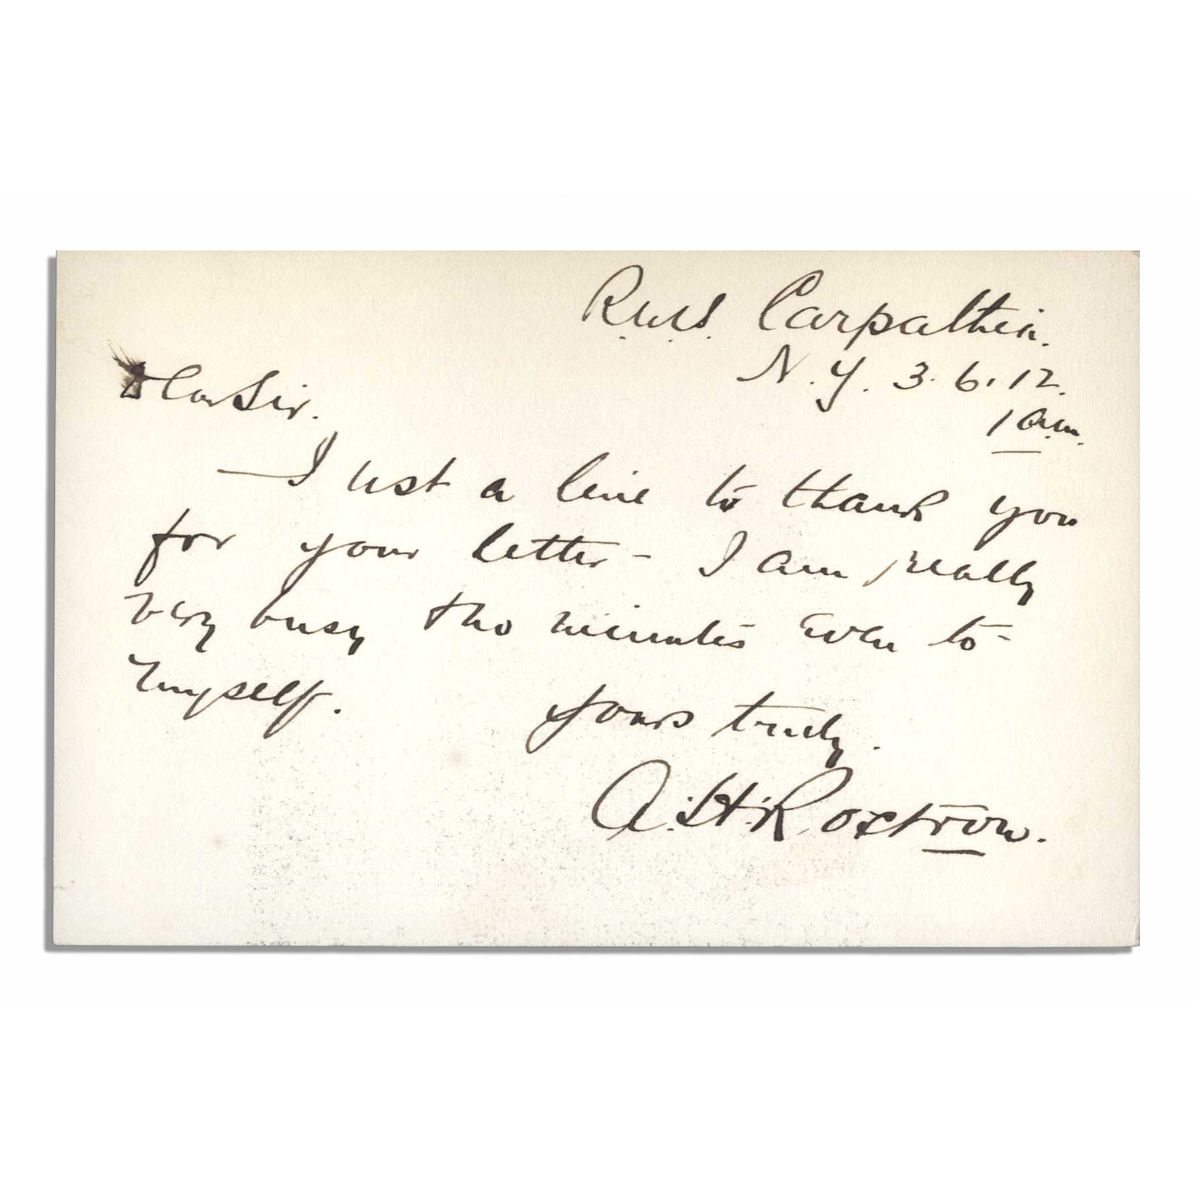 R.M.S. Carpathia.
N.Y. 3.6.12.
1 a.m.
Dear Sir.
— Just a line to thank you
for your letter – I am really
very busy & no minutes even to
myself.
Yours truly.
A.H. Rostron.